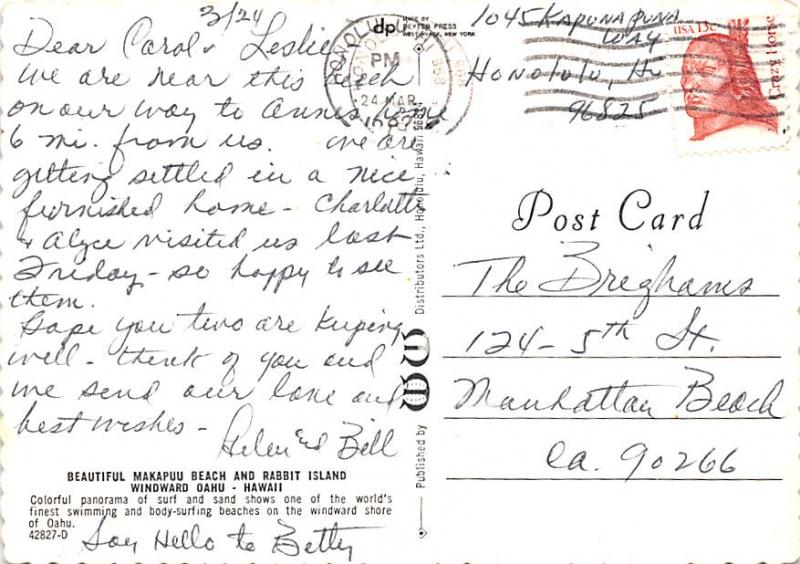 3/24
Dear Carol & Leslie
We are near this beach
on our way to Anne's home
6 mi. from us. We are
getting settled in a nice
furnished home - Charlotte
& Alyce visited us last
Friday - so happy to see
them.
Hope you two are keeping
well - think of you and
we send our love and
best wishes -
Helen and Bill
BEAUTIFUL MAKAPUU BEACH AND RABBIT ISLAND
WINDWARD OAHU - HAWAII
Colorful panorama of surf and sand shows one of the world's
finest swimming and body-surfing beaches on the windward shore
of Oahu.
42827-D
Say Hello to Betty
dp
MADE BY
DEXTER PRESS
WEST NYACK, NEW YORK
HONOLULU, HI
PM
24 MAR
Published by
Distributors Ltd., Honolulu, Hawaii
1045 Kapuna Puna
Way
Honolulu, Hi
96825
USA 13c
Crazy Horse
Post Card
The Brighams
124 - 5th St.
Manhattan Beach
Ca. 90266